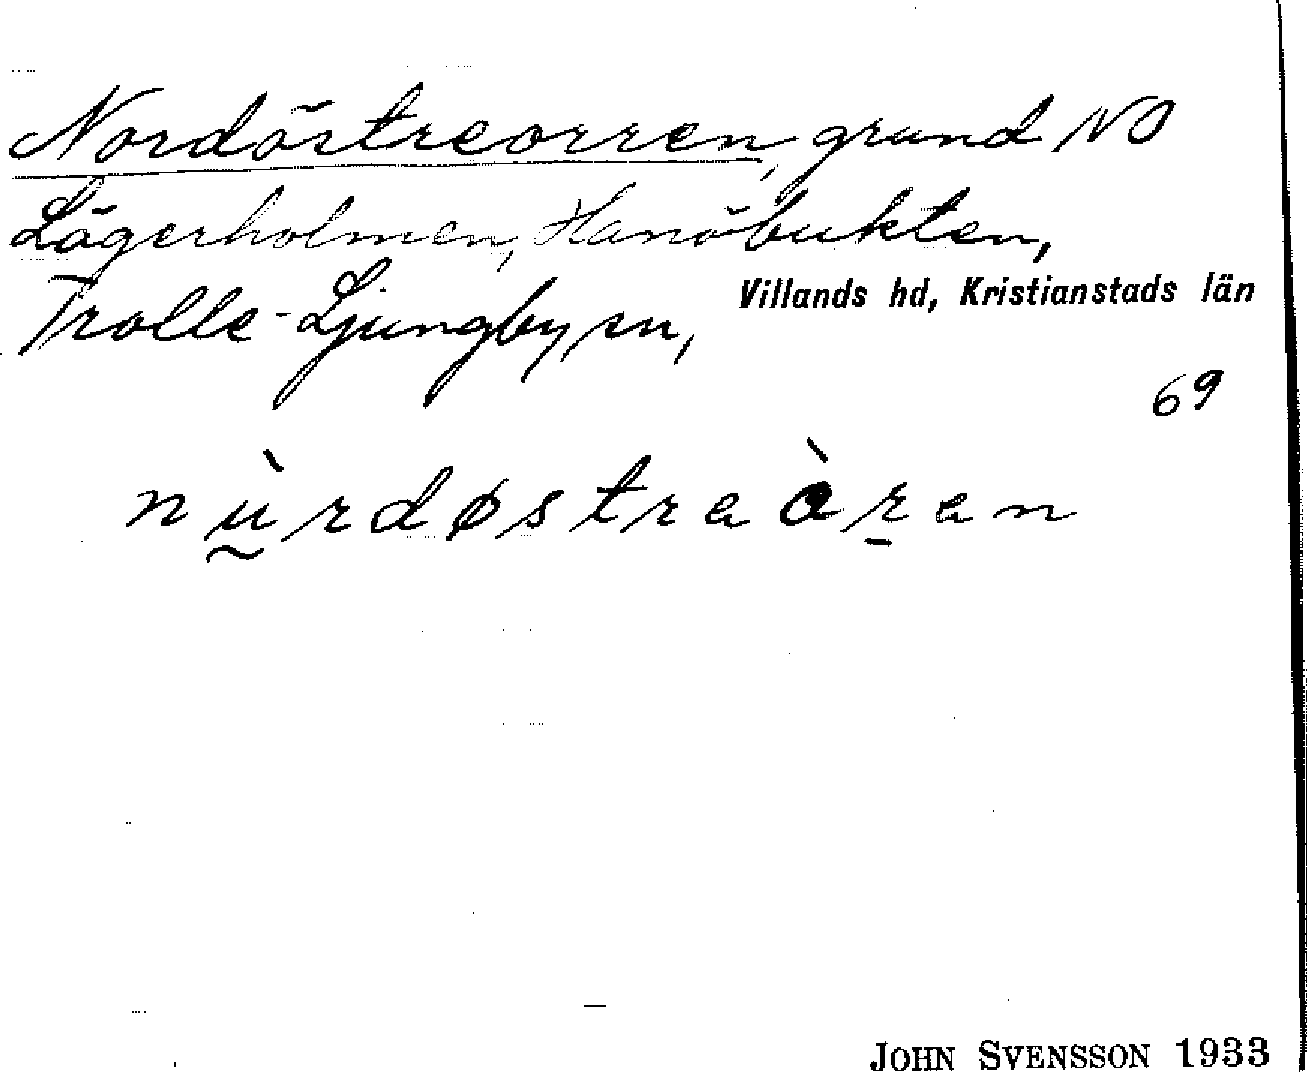 Nordöstreorren, grund NO
Lägerholmen, Hanöbukten,
Trolle-Ljungby sn,
Villands hd, Kristianstads län
69
nṵ̀rdøstreòṟen
JOHN SVENSSON 1933